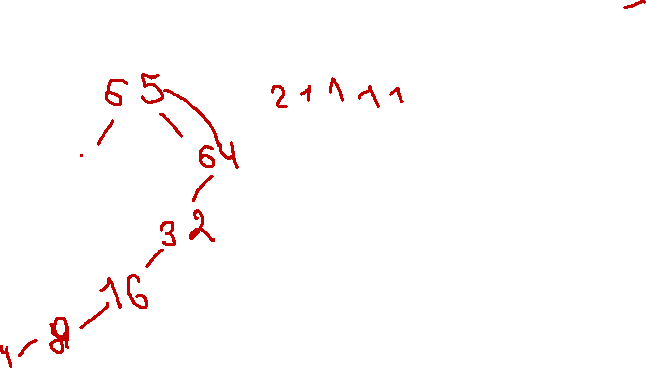 65 21111
64
32
16
8
4